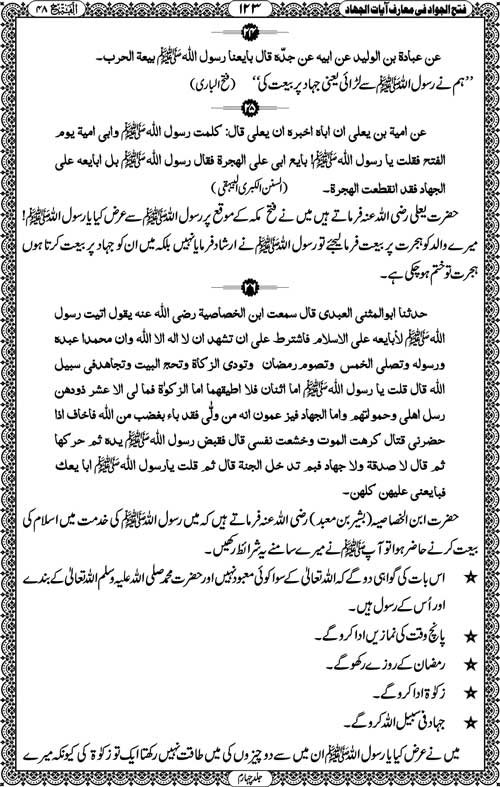 فتح الجواد فی معارف آیات الجهاد ۱۲۳ الفتح ۴۸
۲۴
عن عبادة بن الوليد عن ابيه عن جدّه قال بايعنا رسول الله ﷺ بيعة الحرب۔
”ہم نے رسول اللہ ﷺ سے لڑائی یعنی جہاد پر بیعت کی“ (فتح الباری)
۲۵
عن امية بن يعلى ان اباه اخبره ان يعلى قال: كلمت رسول الله ﷺ وابى امية يوم
الفتح فقلت يا رسول الله ﷺ! بايع ابى على الهجرة فقال رسول الله ﷺ بل ابايعه على
الجهاد فقد انقطعت الهجرة۔ (السنن الکبری للبیہقی)
حضرت یعلی رضی اللہ عنہ فرماتے ہیں میں نے فتح مکہ کے موقع پر رسول اللہ ﷺ سے عرض کیا یا رسول اللہ ﷺ!
میرے والد کو ہجرت پر بیعت فرما لیجئے تو رسول اللہ ﷺ نے ارشاد فرمایا نہیں بلکہ میں ان کو جہاد پر بیعت کرتا ہوں
ہجرت تو ختم ہو چکی ہے۔
۲۶
حدثنا ابوالمثنى العبدى قال سمعت ابن الخصاصية رضي الله عنه يقول اتيت رسول
الله ﷺ لأبايعه على الاسلام فاشترط على ان تشهد ان لا اله الا الله وان محمدا عبده
ورسوله وتصلى الخمس وتصوم رمضان وتودى الزكاة وتحج البيت وتجاهد فى سبيل
الله قال قلت يا رسول الله ﷺ اما اثنتان فلا اطيقهما اما الزكوٰة فما لى الا عشر ذود هن
رسل اهلى وحمولتهم واما الجهاد فيز عمون انه من ولّٰى فقد باء بغضب من الله فاخاف اذا
حضرنى قتال كرهت الموت وخشعت نفسى قال فقبض رسول الله ﷺ يده ثم حركها
ثم قال لا صدقة ولا جهاد فبم تد خل الجنة قال ثم قلت يارسول الله ﷺ ابا يعك
فبايعنى عليهن كلهن۔
حضرت ابن الخصاصیہ (بشیر بن معبد) رضی اللہ عنہ فرماتے ہیں کہ میں رسول اللہ ﷺ کی خدمت میں اسلام کی
بیعت کرنے حاضر ہوا تو آپ ﷺ نے میرے سامنے یہ شرائط رکھیں۔
★ اس بات کی گواہی دو گے کہ اللہ تعالیٰ کے سوا کوئی معبود نہیں اور حضرت محمد صلی اللہ علیہ وسلم اللہ تعالیٰ کے بندے
اور اُس کے رسول ہیں۔
★ پانچ وقت کی نمازیں ادا کرو گے۔
★ رمضان کے روزے رکھو گے۔
★ زکوٰۃ ادا کرو گے۔
★ جہاد فی سبیل اللہ کرو گے۔
میں نے عرض کیا یا رسول اللہ ﷺ ان میں سے دو چیزوں کی میں طاقت نہیں رکھتا ایک تو زکوٰۃ کی کیونکہ میرے
جلد چہارم